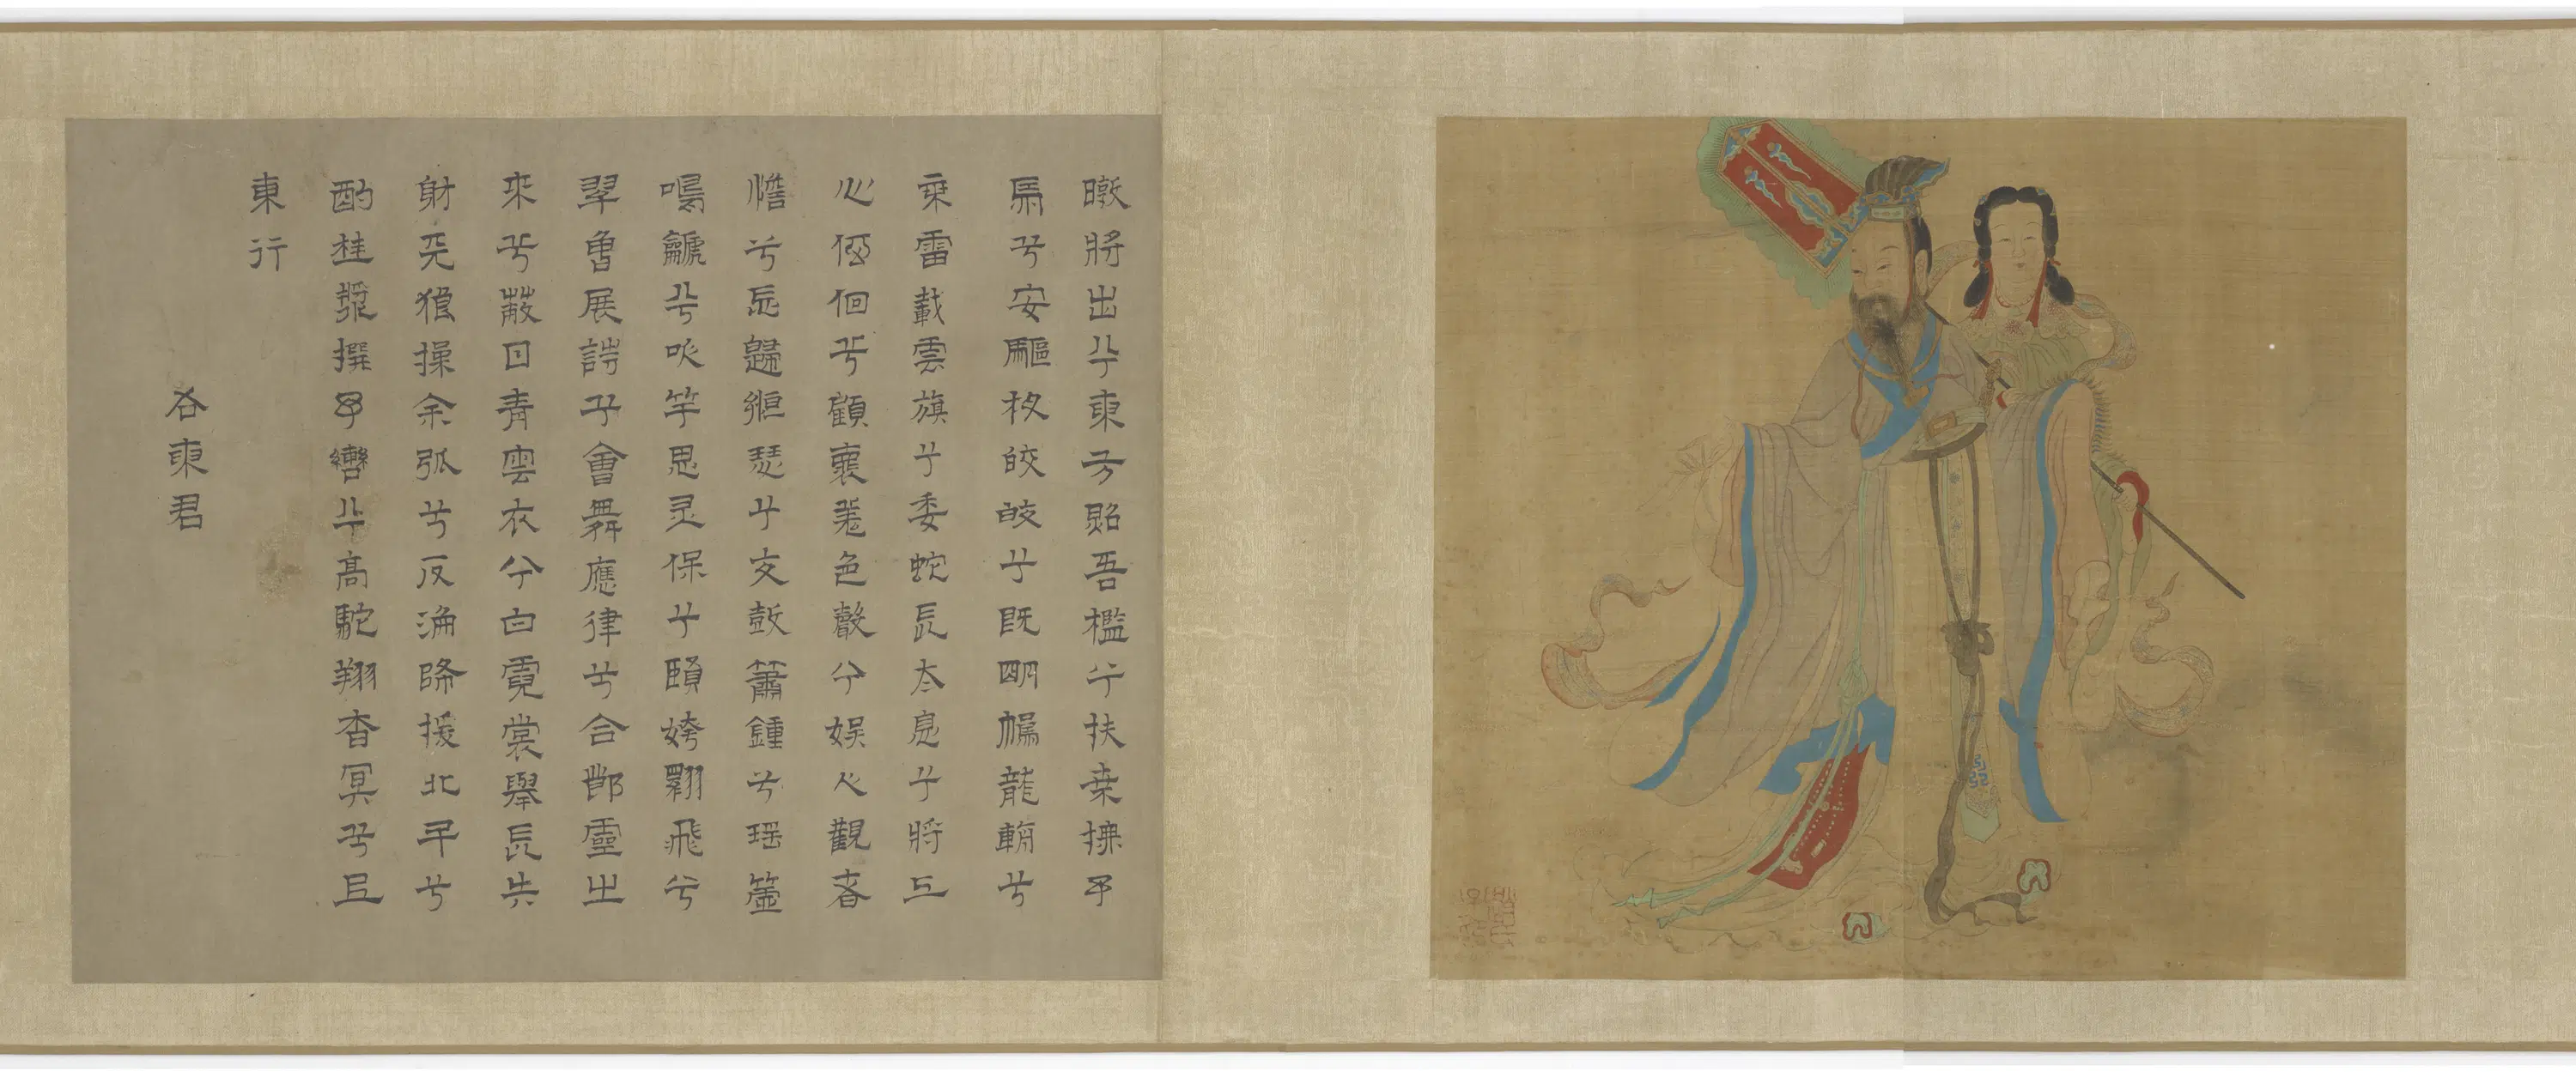 暾將出兮東方炤吾檻兮扶桑撫予
馬兮安驅夜皎皎兮既明駕龍輈兮
乘雷載雲旗兮委蛇長太息兮將上
心低佪兮顧懷羌色聲兮娛人觀者
憺兮忘歸緪瑟兮交鼓簫鍾兮瑤簴
鳴䶵兮吹竽思灵保兮賢姱翾飛兮
翠曾展詩兮會舞應律兮合節靈之
來兮蔽日青雲衣兮白霓裳舉長矢
射天狼操余弧兮反淪降援北斗兮
酌桂漿撰予轡兮高駝翔杳冥兮以
東行
右東君